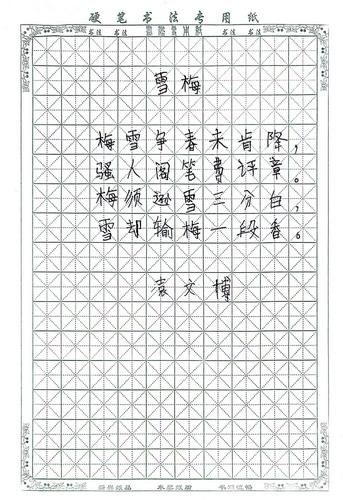 硬笔书法专用纸
书法 书法 书法 书法
雪梅
梅雪争春未肯降，
骚人阁笔费评章。
梅须逊雪三分白，
雪却输梅一段香。
袁文博